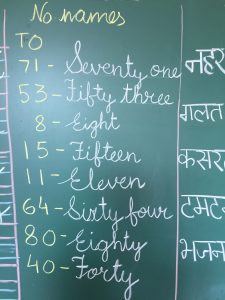 No names
TO
71 - Seventy one
53 - Fifty three
8 - Eight
15 - Fifteen
11 - Eleven
64 - Sixty four
80 - Eighty
40 - Forty
नहर
गलत
कसरत
टमटम
भजन